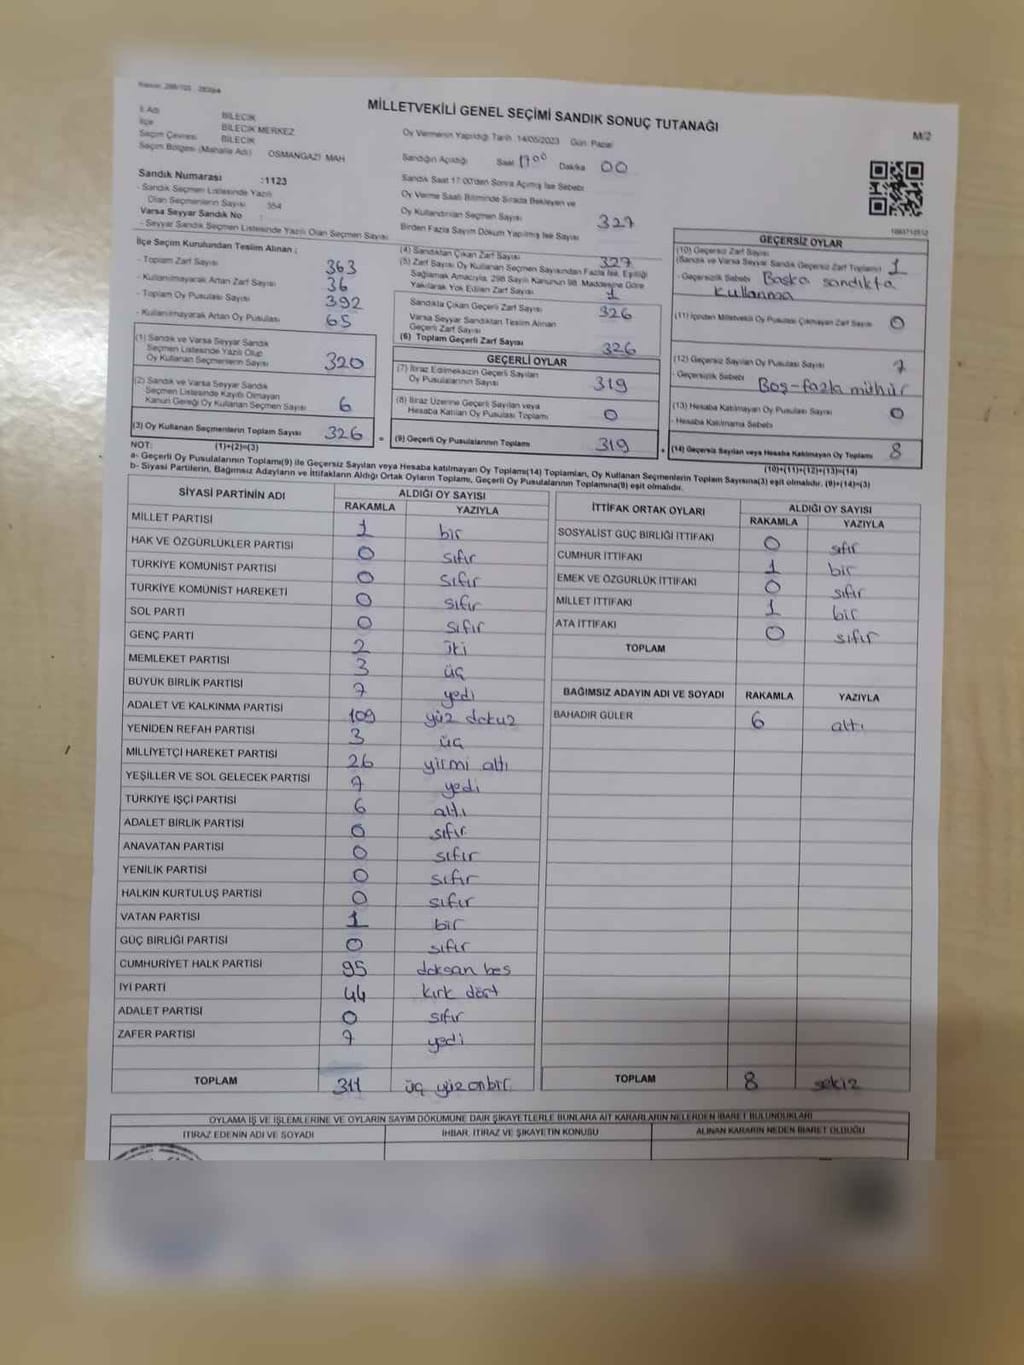 MİLLETVEKİLİ GENEL SEÇİMİ SANDIK SONUÇ TUTANAĞI
M/2
İl Adı BİLECİK
İlçe BİLECİK MERKEZ
Seçim Çevresi BİLECİK
Seçim Bölgesi (Mahalle Adı) OSMANGAZİ MAH
Sandık Numarası :1123
- Sandık Seçmen Listesinde Yazılı
Olan Seçmenlerin Sayısı 354
Varsa Seyyar Sandık No
- Seyyar Sandık Seçmen Listesinde Yazılı Olan Seçmen Sayısı
Oy Vermenin Yapıldığı Tarih 14/05/2023 Gün Pazar
Sandığın Açıldığı Saat 17⁰⁰ Dakika 00
Sandık Saat 17:00'den Sonra Açılmış İse Sebebi
Oy Verme Saati Bitiminde Sırada Bekleyen ve
Oy Kullandırılan Seçmen Sayısı 327
Birden Fazla Sayım Döküm Yapılmış İse Sayısı
İlçe Seçim Kurulundan Teslim Alınan ;
- Toplam Zarf Sayısı 363
- Kullanılmayarak Artan Zarf Sayısı 36
- Toplam Oy Pusulası Sayısı 392
- Kullanılmayarak Artan Oy Pusulası 65
(1) Sandık ve Varsa Seyyar Sandık
Seçmen Listesinde Yazılı Olup
Oy Kullanan Seçmenlerin Sayısı 320
(2) Sandık ve Varsa Seyyar Sandık
Seçmen Listesinde Kayıtlı Olmayan
Kanun Gereği Oy Kullanan Seçmen Sayısı 6
(3) Oy Kullanan Seçmenlerin Toplam Sayısı 326
(1)+(2)=(3)
(4) Sandıktan Çıkan Zarf Sayısı 327
(5) Zarf Sayısı Oy Kullanan Seçmen Sayısından Fazla İse, Eşitliği
Sağlamak Amacıyla, 298 Sayılı Kanunun 98. Maddesine Göre
Yakılarak Yok Edilen Zarf Sayısı 1
Sandıkla Çıkan Geçerli Zarf Sayısı 326
Varsa Seyyar Sandıktan Teslim Alınan
Geçerli Zarf Sayısı
(6) Toplam Geçerli Zarf Sayısı 326
GEÇERLİ OYLAR
(7) İtiraz Edilmeksizin Geçerli Sayılan
Oy Pusulalarının Sayısı 319
(8) İtiraz Üzerine Geçerli Sayılan veya
Hesaba Katılan Oy Pusulası Toplamı 0
= (9) Geçerli Oy Pusulalarının Toplamı 319
GEÇERSİZ OYLAR
(10) Geçersiz Zarf Sayısı
(Sandık ve Varsa Seyyar Sandık Geçersiz Zarf Toplamı) 1
- Geçersizlik Sebebi Başka sandıkta
kullanma
(11) İçinden Milletvekili Oy Pusulası Çıkmayan Zarf Sayısı 0
(12) Geçersiz Sayılan Oy Pusulası Sayısı 7
- Geçersizlik Sebebi Boş-fazla mühür
(13) Hesaba Katılmayan Oy Pusulası Sayısı 0
- Hesaba Katılmama Sebebi
+ (14) Geçersiz Sayılan veya Hesaba Katılmayan Oy Toplamı 8
(10)+(11)+(12)+(13)=(14)
NOT:
a- Geçerli Oy Pusulalarının Toplamı(9) ile Geçersiz Sayılan veya Hesaba katılmayan Oy Toplamı(14) Toplamları, Oy Kullanan Seçmenlerin Toplam Sayısına(3) eşit olmalıdır. (9)+(14)=(3)
b- Siyasi Partilerin, Bağımsız Adayların ve İttifakların Aldığı Ortak Oyların Toplamı, Geçerli Oy Pusulalarının Toplamına(9) eşit olmalıdır.
SİYASİ PARTİNİN ADI ALDIĞI OY SAYISI
RAKAMLA YAZIYLA
MİLLET PARTİSİ 1 bir
HAK VE ÖZGÜRLÜKLER PARTİSİ 0 sıfır
TÜRKİYE KOMÜNİST PARTİSİ 0 sıfır
TÜRKİYE KOMÜNİST HAREKETİ 0 sıfır
SOL PARTİ 0 sıfır
GENÇ PARTİ 2 iki
MEMLEKET PARTİSİ 3 üç
BÜYÜK BİRLİK PARTİSİ 7 yedi
ADALET VE KALKINMA PARTİSİ 109 yüz dokuz
YENİDEN REFAH PARTİSİ 3 üç
MİLLİYETÇİ HAREKET PARTİSİ 26 yirmi altı
YEŞİLLER VE SOL GELECEK PARTİSİ 7 yedi
TÜRKİYE İŞÇİ PARTİSİ 6 altı
ADALET BİRLİK PARTİSİ 0 sıfır
ANAVATAN PARTİSİ 0 sıfır
YENİLİK PARTİSİ 0 sıfır
HALKIN KURTULUŞ PARTİSİ 0 sıfır
VATAN PARTİSİ 1 bir
GÜÇ BİRLİĞİ PARTİSİ 0 sıfır
CUMHURİYET HALK PARTİSİ 95 doksan beş
İYİ PARTİ 44 kırk dört
ADALET PARTİSİ 0 sıfır
ZAFER PARTİSİ 7 yedi
TOPLAM 311 üç yüz onbir
İTTİFAK ORTAK OYLARI ALDIĞI OY SAYISI
RAKAMLA YAZIYLA
SOSYALİST GÜÇ BİRLİĞİ İTTİFAKI 0 sıfır
CUMHUR İTTİFAKI 1 bir
EMEK VE ÖZGÜRLÜK İTTİFAKI 0 sıfır
MİLLET İTTİFAKI 1 bir
ATA İTTİFAKI 0 sıfır
TOPLAM
BAĞIMSIZ ADAYIN ADI VE SOYADI RAKAMLA YAZIYLA
BAHADIR GÜLER 6 altı
TOPLAM 8 sekiz
OYLAMA İŞ VE İŞLEMLERİNE VE OYLARIN SAYIM DÖKÜMÜNE DAİR ŞİKAYETLERLE BUNLARA AİT KARARLARIN NELERDEN İBARET BULUNDUKLARI
İTİRAZ EDENİN ADI VE SOYADI İHBAR, İTİRAZ VE ŞİKAYETİN KONUSU ALINAN KARARIN NEDEN İBARET OLDUĞU